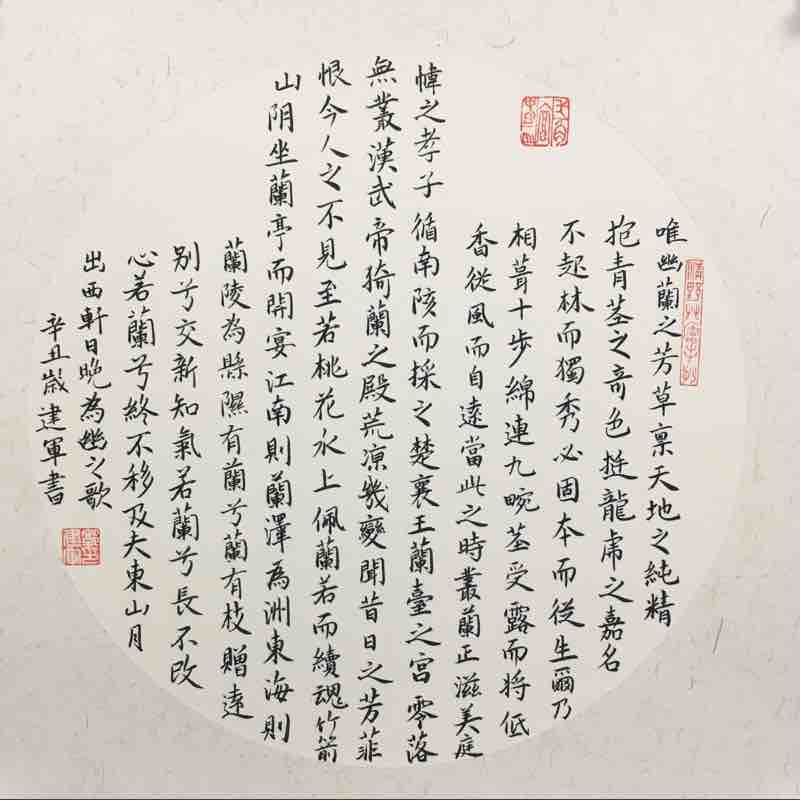 唯幽蘭之芳草禀天地之純精
抱青茎之奇色挺龍虎之嘉名
不起林而獨秀必固本而從生爾乃
相葺十步綿連九畹茎受露而将低
香從風而自遠當此之時叢蘭正滋美庭
幃之孝子循南陔而採之楚襄王蘭臺之宮零落
無叢漢武帝猗蘭之殿荒凉幾變聞昔日之芳菲
恨今人之不見至若桃花水上佩蘭若而續魂竹箭
山阴坐蘭亭而開宴江南則蘭澤為洲東海則
蘭陵為縣隰有蘭兮蘭有枝贈遠
别兮交新知氣若蘭兮長不改
心若蘭兮終不移及夫東山月
出西軒日晚為幽之歌
辛丑嵗建軍書